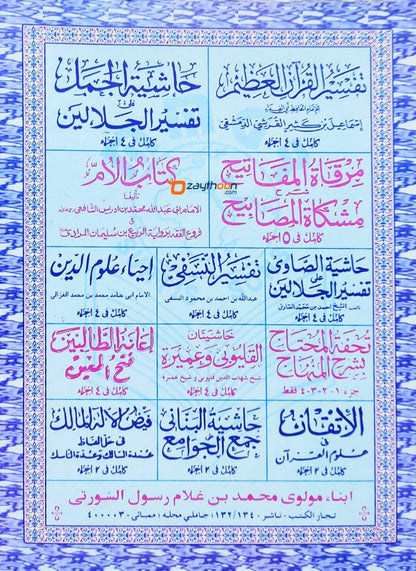 zaythoon
.com
تفسير القرآن العظيم
للإمام الحافظ أبي الفداء
إسماعيل بن كثير القرشي الدمشقي
كامل في ٤ اجزاء
حاشية الجمل
على
تفسير الجلالين
كامل في ٤ اجزاء
مرقاة المفاتيح
شرح
مشكاة المصابيح
كامل في ٥ اجزاء
كتاب الأم
تأليف
الامام ابي عبد الله محمد بن ادريس الشافعي
في
فروع الفقه برواية الربيع بن سليمان المرادي
حاشية الصاوي
على
تفسير الجلالين
تأليف الشيخ احمد بن محمد الصاوي
كامل في ٤ اجزاء
تفسير النسفي
عبدالله بن احمد بن محمود النسفي
كامل في ٤ اجزاء
إحياء علوم الدين
الامام ابي حامد محمد بن محمد الغزالي
كامل في ٤ اجزاء
تحفة المحتاج
بشرح المنهاج
جزء ١-٢-٣-٤ فقط
حاشيتان
القليوبي وعميرة
شيخ شهاب الدين قليوبي وشيخ عميرة
كامل في ٤ اجزاء
إعانة الطالبين
فتح المعين
كامل في ٤ اجزاء
الإتقان
في
علوم القرآن
كامل في ٢ اجزاء
حاشية البناني
على
جمع الجوامع
كامل في ٢ اجزاء
فيض الإله المالك
في حل الفاظ
عمدة السالك وعدة الناسك
كامل في ٢ اجزاء
ابناء مولوي محمد بن غلام رسول السورتي
تجار الكتب - ناشر - ١٣٢/١٣٤ جاملي محله ؛ ممبائي - ٤٠٠٠٠٣